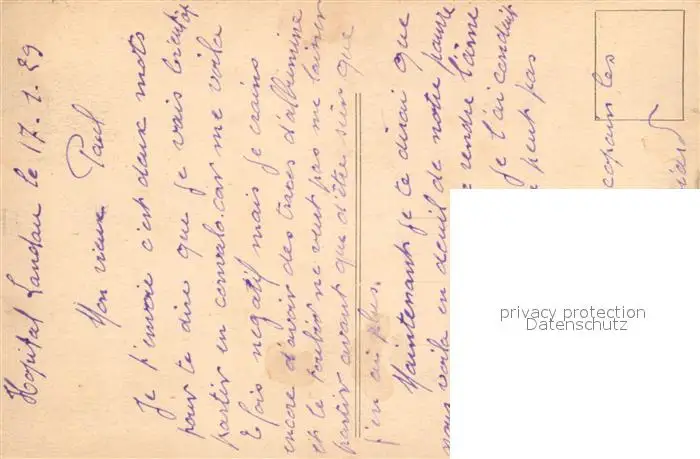 Hopital Landau le 17.1.29
Mon vieux Paul
Je t'envoie c'est deux mots
pour te dire que je vais bientôt
partir en convalo. car me voila
2 fois negatif mais je crains
encore d'avoir des traces d'albumine
et le toubir ne veut pas me laisser
partir avant que d'être sûr que
j'en ai plus.
Maintenant je te dirai que
nous voila en deuil de notre pauvre
rendre l'âme
je l'ai conduit
peut pas
copain les
privacy protection
Datenschutz